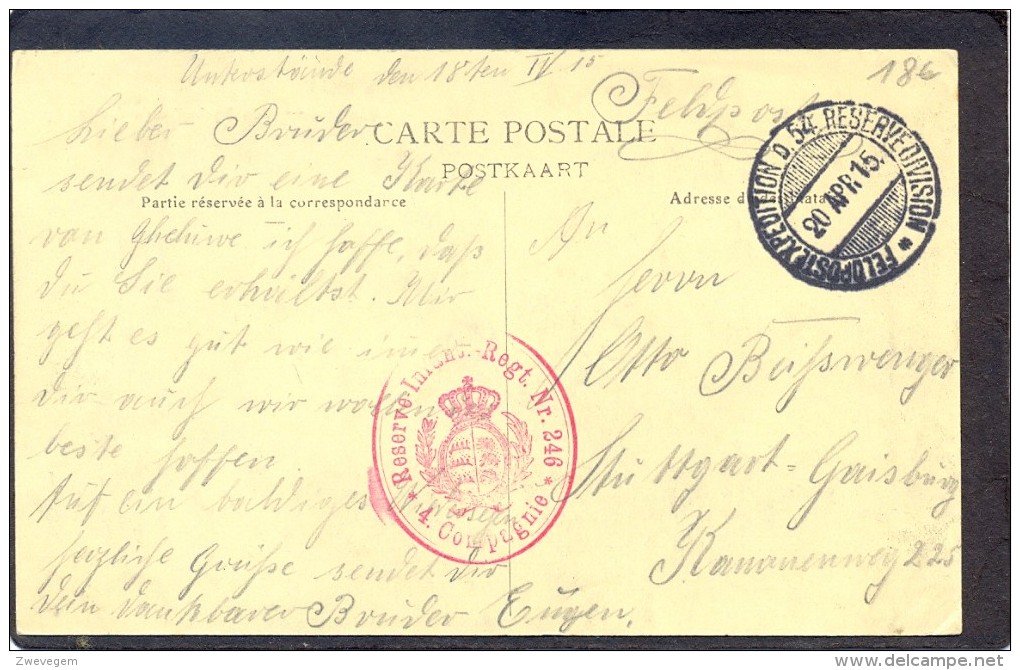 Unterstände den 18ten IV 15
186
Feldpost
Lieber Bruder
CARTE POSTALE
POSTKAART
sendet Dir eine Karte
Partie réservée à la correspondance
Adresse d
von Gheluwe ich hoffe, daß
du Sie erhältst. Mir
geht es gut wie
Dir auch wir wollen
beste hoffen.
Auf ein baldiges
herzliche Grüße sendet Dir
Dein dankbarer Bruder Eugen.
An
Herrn
Otto Beißwenger
Stuttgart-Gaisburg
Kanonenweg 225
FELDPOSTEXPEDITION D. 54. RESERVEDIVISION *
20 APR 15.
Reserve-Infant.-Regt. Nr. 246
* 4. Compagnie *
Zwevegem
delcampe.net